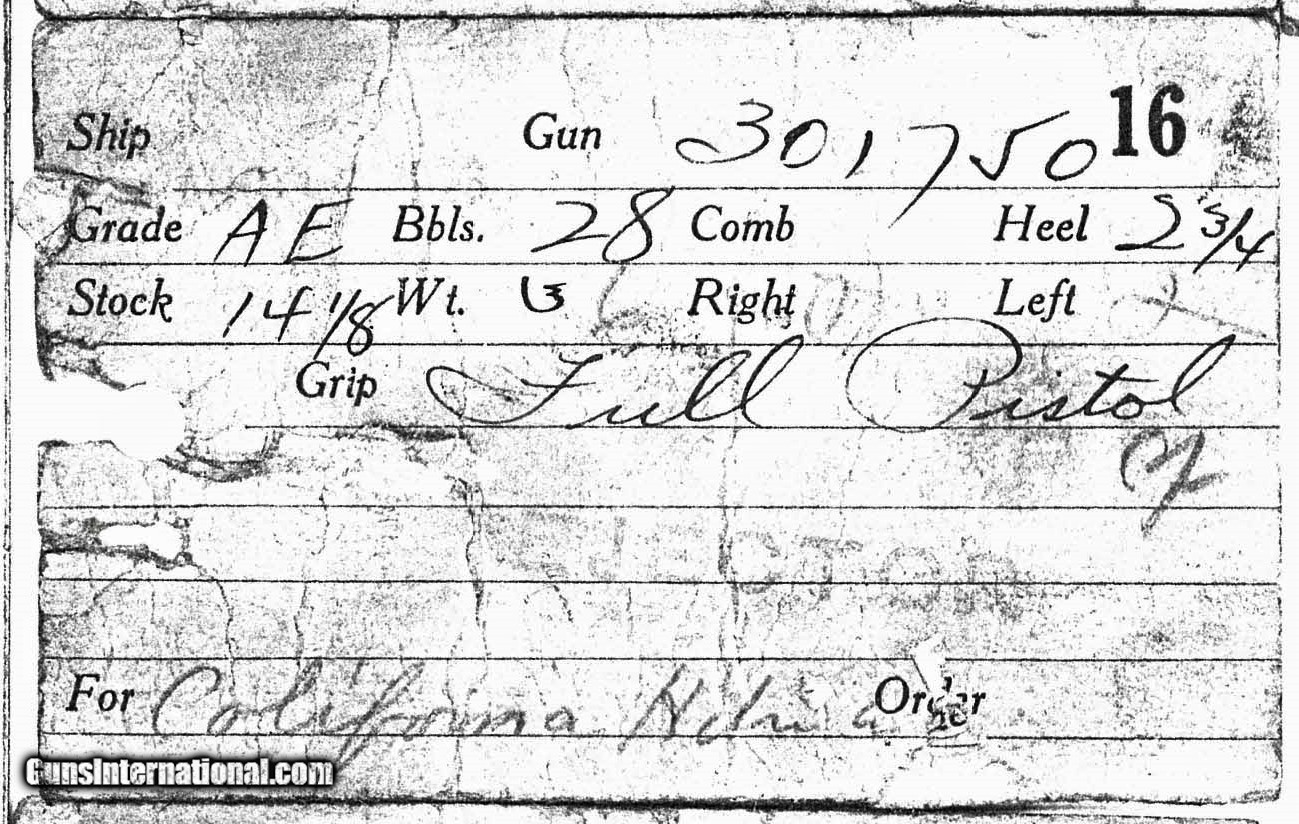 Ship Gun 301,750 16
Grade AE Bbls. 28 Comb Heel 2 3/4
Stock 14 1/8 Wt. Right Left
Grip Full Pistol
For California Order
GunsInternational.com